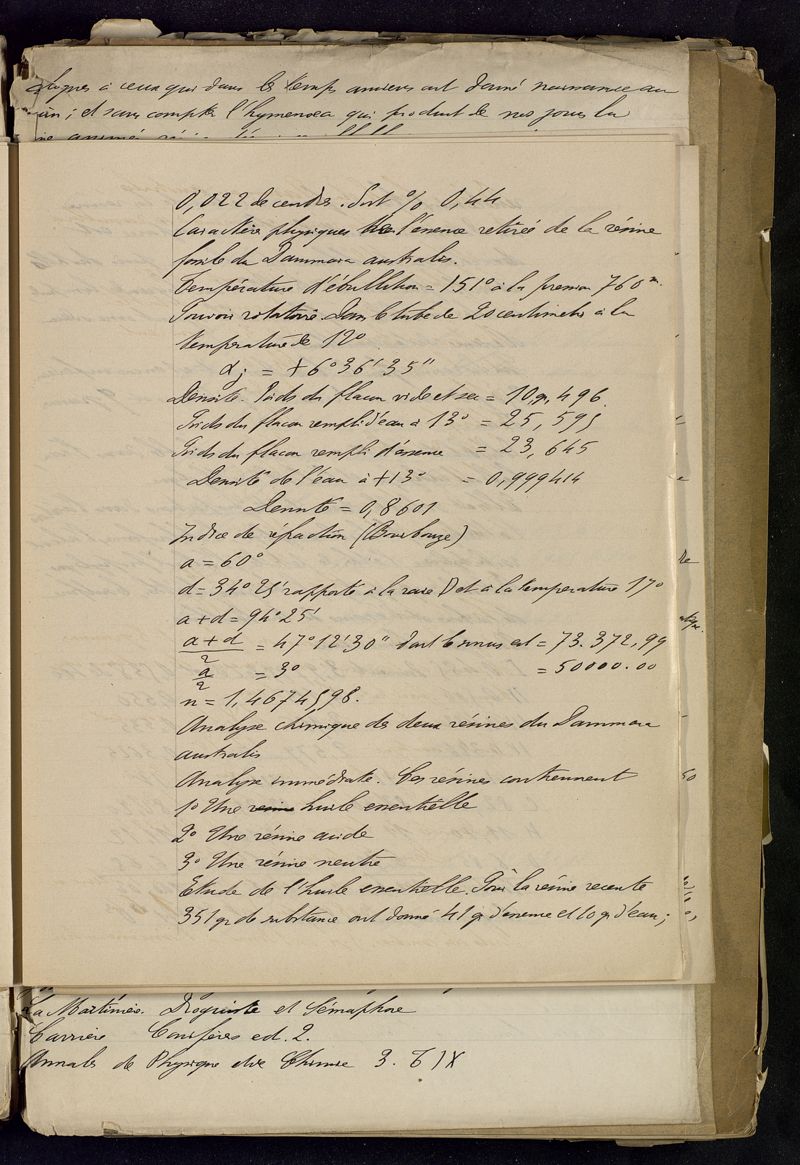 logues à ceux qui dans les temps anciens ont donné naissance au
; et sans compter l'hymenoea qui produit de nos jours la
0,022 de cendres. Soit % 0,44
Caractères physiques de l'essence retirée de la résine
fossile du Dammara australis.
Température d'ébullition = 151° à la pression 760m.
Pouvoir rotatoire. Dans le tube de 20 centimetres à la
température de 12°
αj = +6°36'35"
Densité. Poids du flacon vide et sec = 10,gr,496.
Poids du flacon rempli d'eau à 13° = 25,595
Poids du flacon rempli d'essence = 23,645
Densité de l'eau à +13° = 0,999414
Densité = 0,8601
Indice de réfraction (Bourbouze)
a = 60°
d = 34°25' rapporté à la raie D et à la température 17°
a + d = 94°25'
a + d / 2 = 47°12'30" dont le sinus est = 73.372,99
a / 2 = 3° = 50000.00
n = 1,4674598.
Analyse chimique des deux résines du Dammara
australis
Analyse immédiate. Ces résines contiennent
1° Une resine huile essentielle
2° Une résine acide
3° Une résine neutre
Etude de l'huile essentielle. Pour la résine recente
351 gr de substance ont donné 41 gr d'essence et 10 gr d'eau;
La Martinière. Droguiste et Sémaphore
Carrière Conifères ed. 2.
Annales de Physique et de Chimie 3. T IX